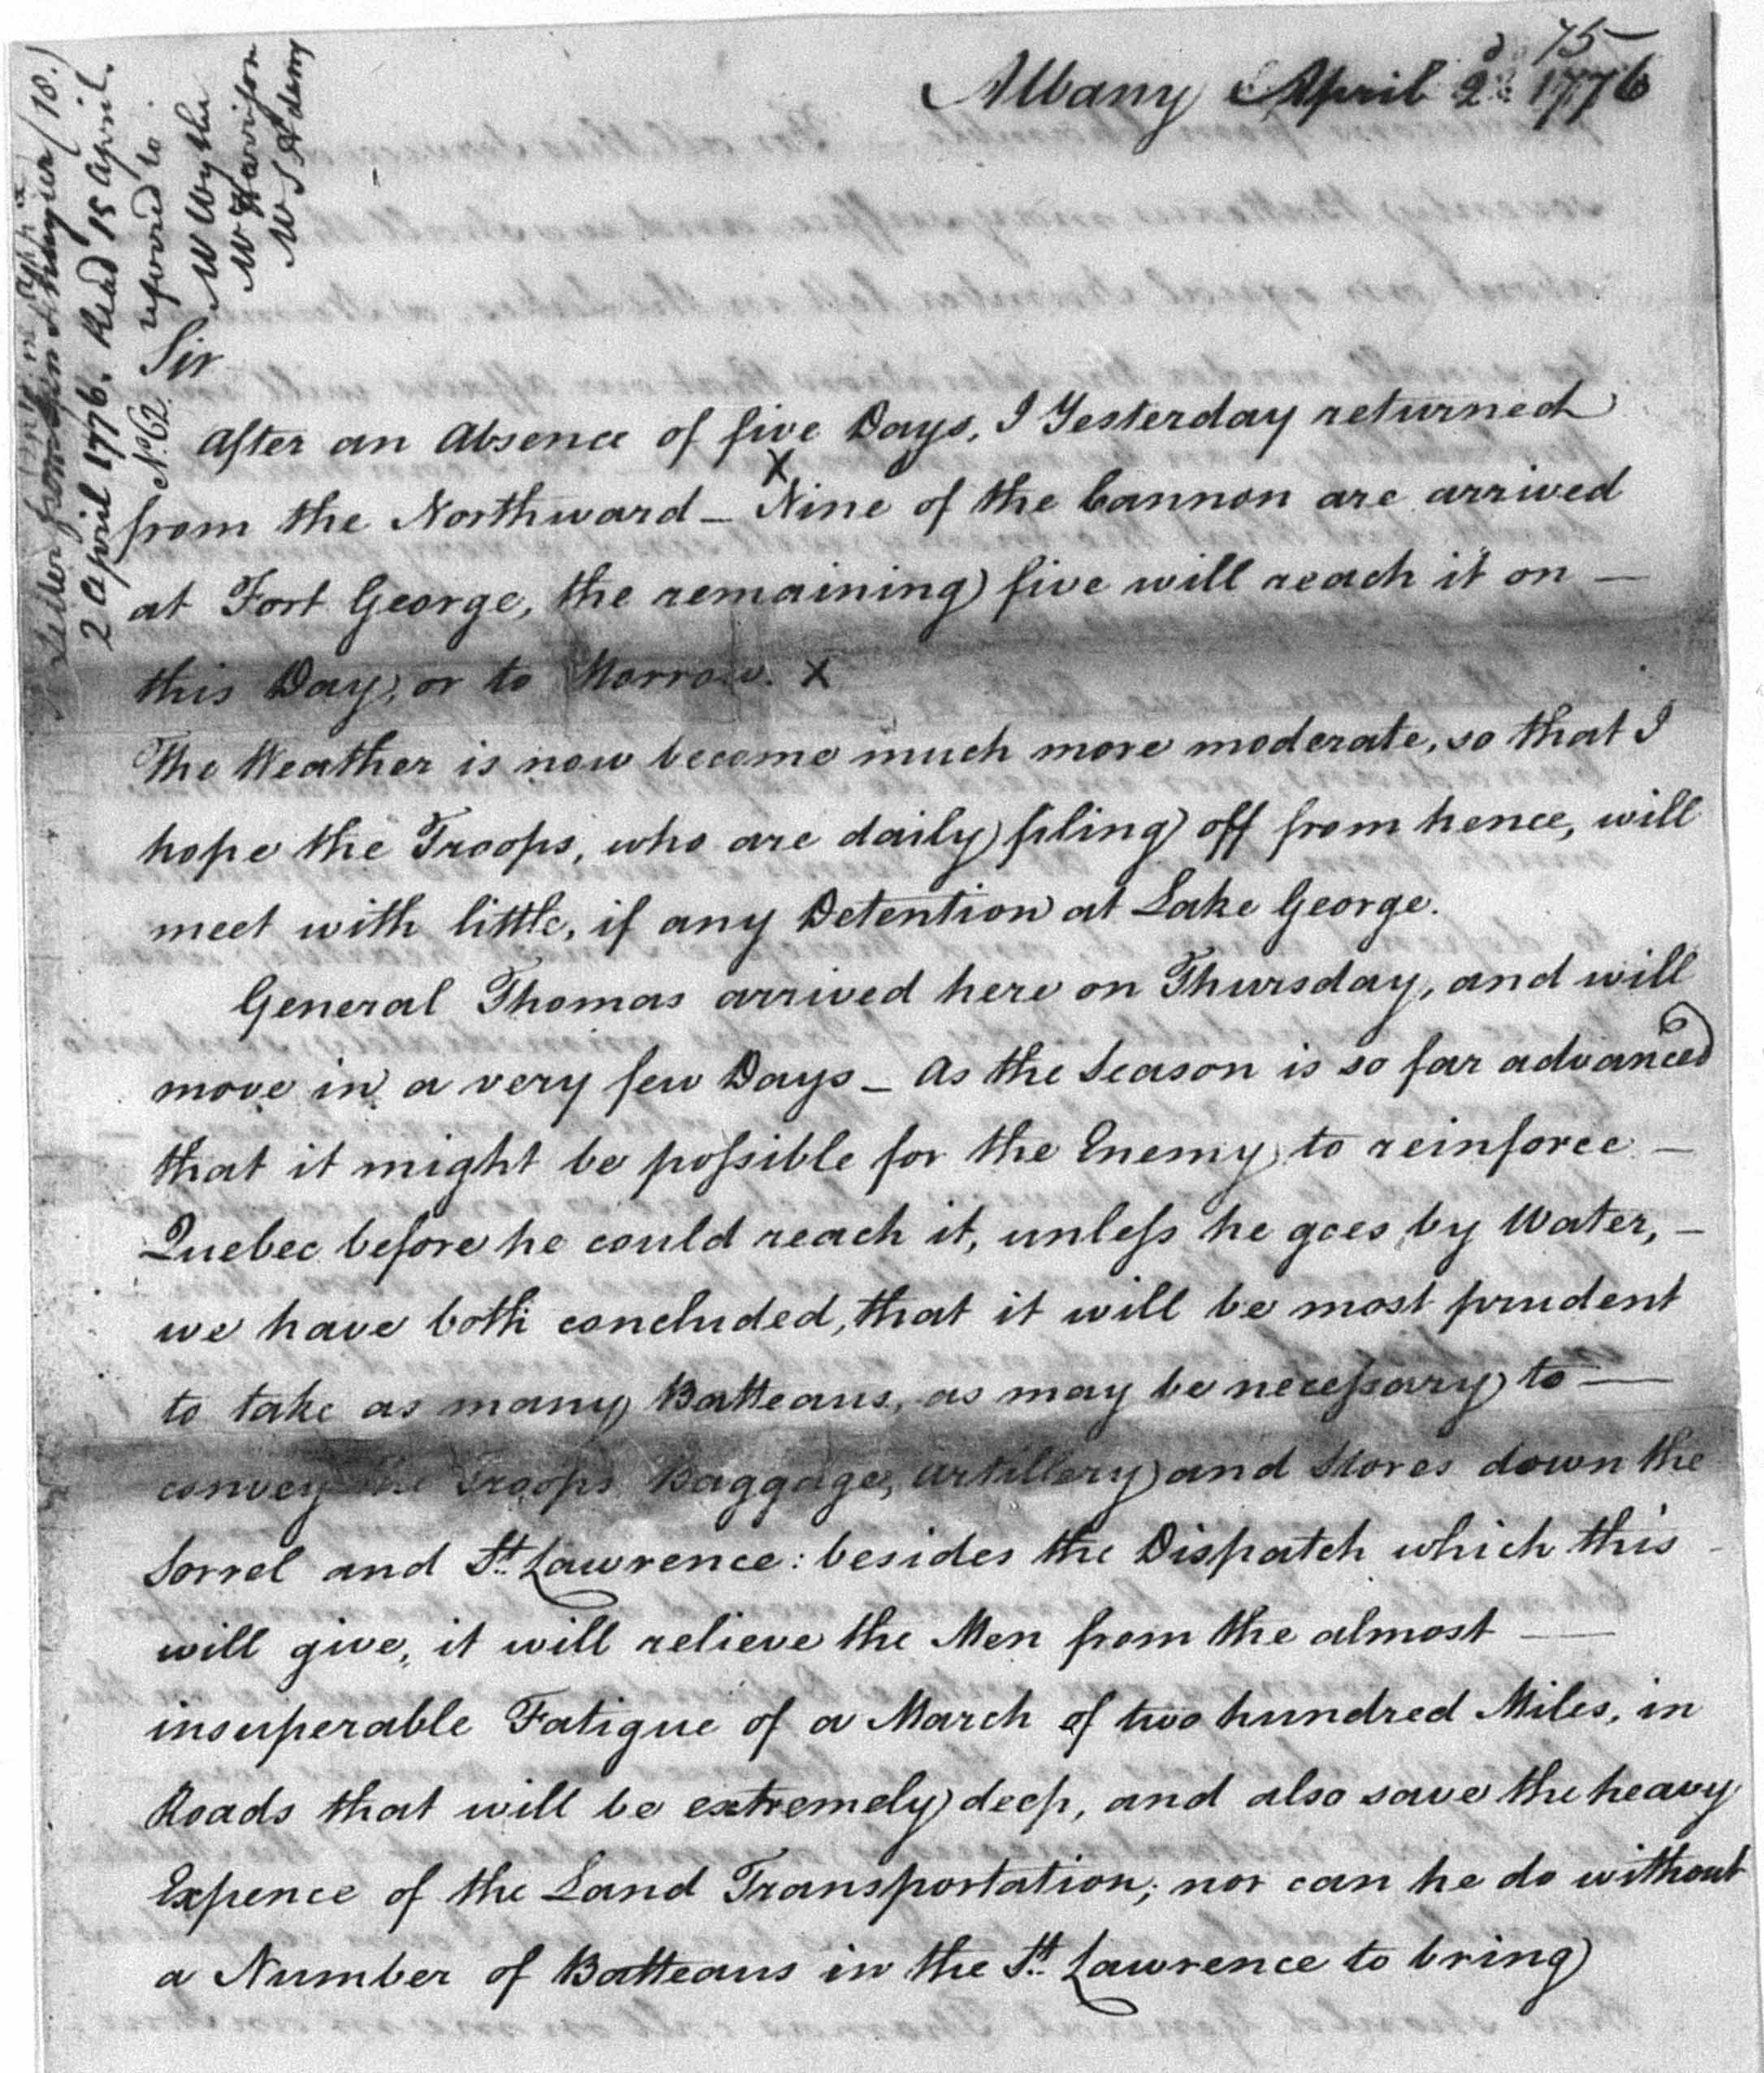 75
Albany April 2d 1776
Letter from Gen Schuyler
2 April 1776. Read 15 April.
No. 62. referred to
Mr Wythe
Mr Harrison
Mr S Adams
Sir
After an Absence of five Days, I Yesterday returned
from the Northward – X Nine of the Cannon are arrived
at Fort George, the remaining five will reach it on —
this Day, or to Morrow. X
The Weather is now become much more moderate, so that I
hope the Troops, who are daily filing off from hence, will
meet with little, if any Detention at Lake George.
General Thomas arrived here on Thursday, and will
move in a very few Days – As the Season is so far advanced
that it might be possible for the Enemy to reinforce –
Quebec before he could reach it, unless he goes by Water, –
we have both concluded, that it will be most prudent
to take as many Batteaus, as may be necessary to —
convey the Troops Baggage, Artillery and Stores down the
Sorrel and St. Lawrence: besides the Dispatch which this -
will give, it will relieve the Men from the almost —
insuperable Fatigue of a March of two hundred Miles, in
Roads that will be extremely deep, and also save the heavy
Expence of the Land Transportation; nor can he do without
a Number of Batteaus in the St. Lawrence to bring